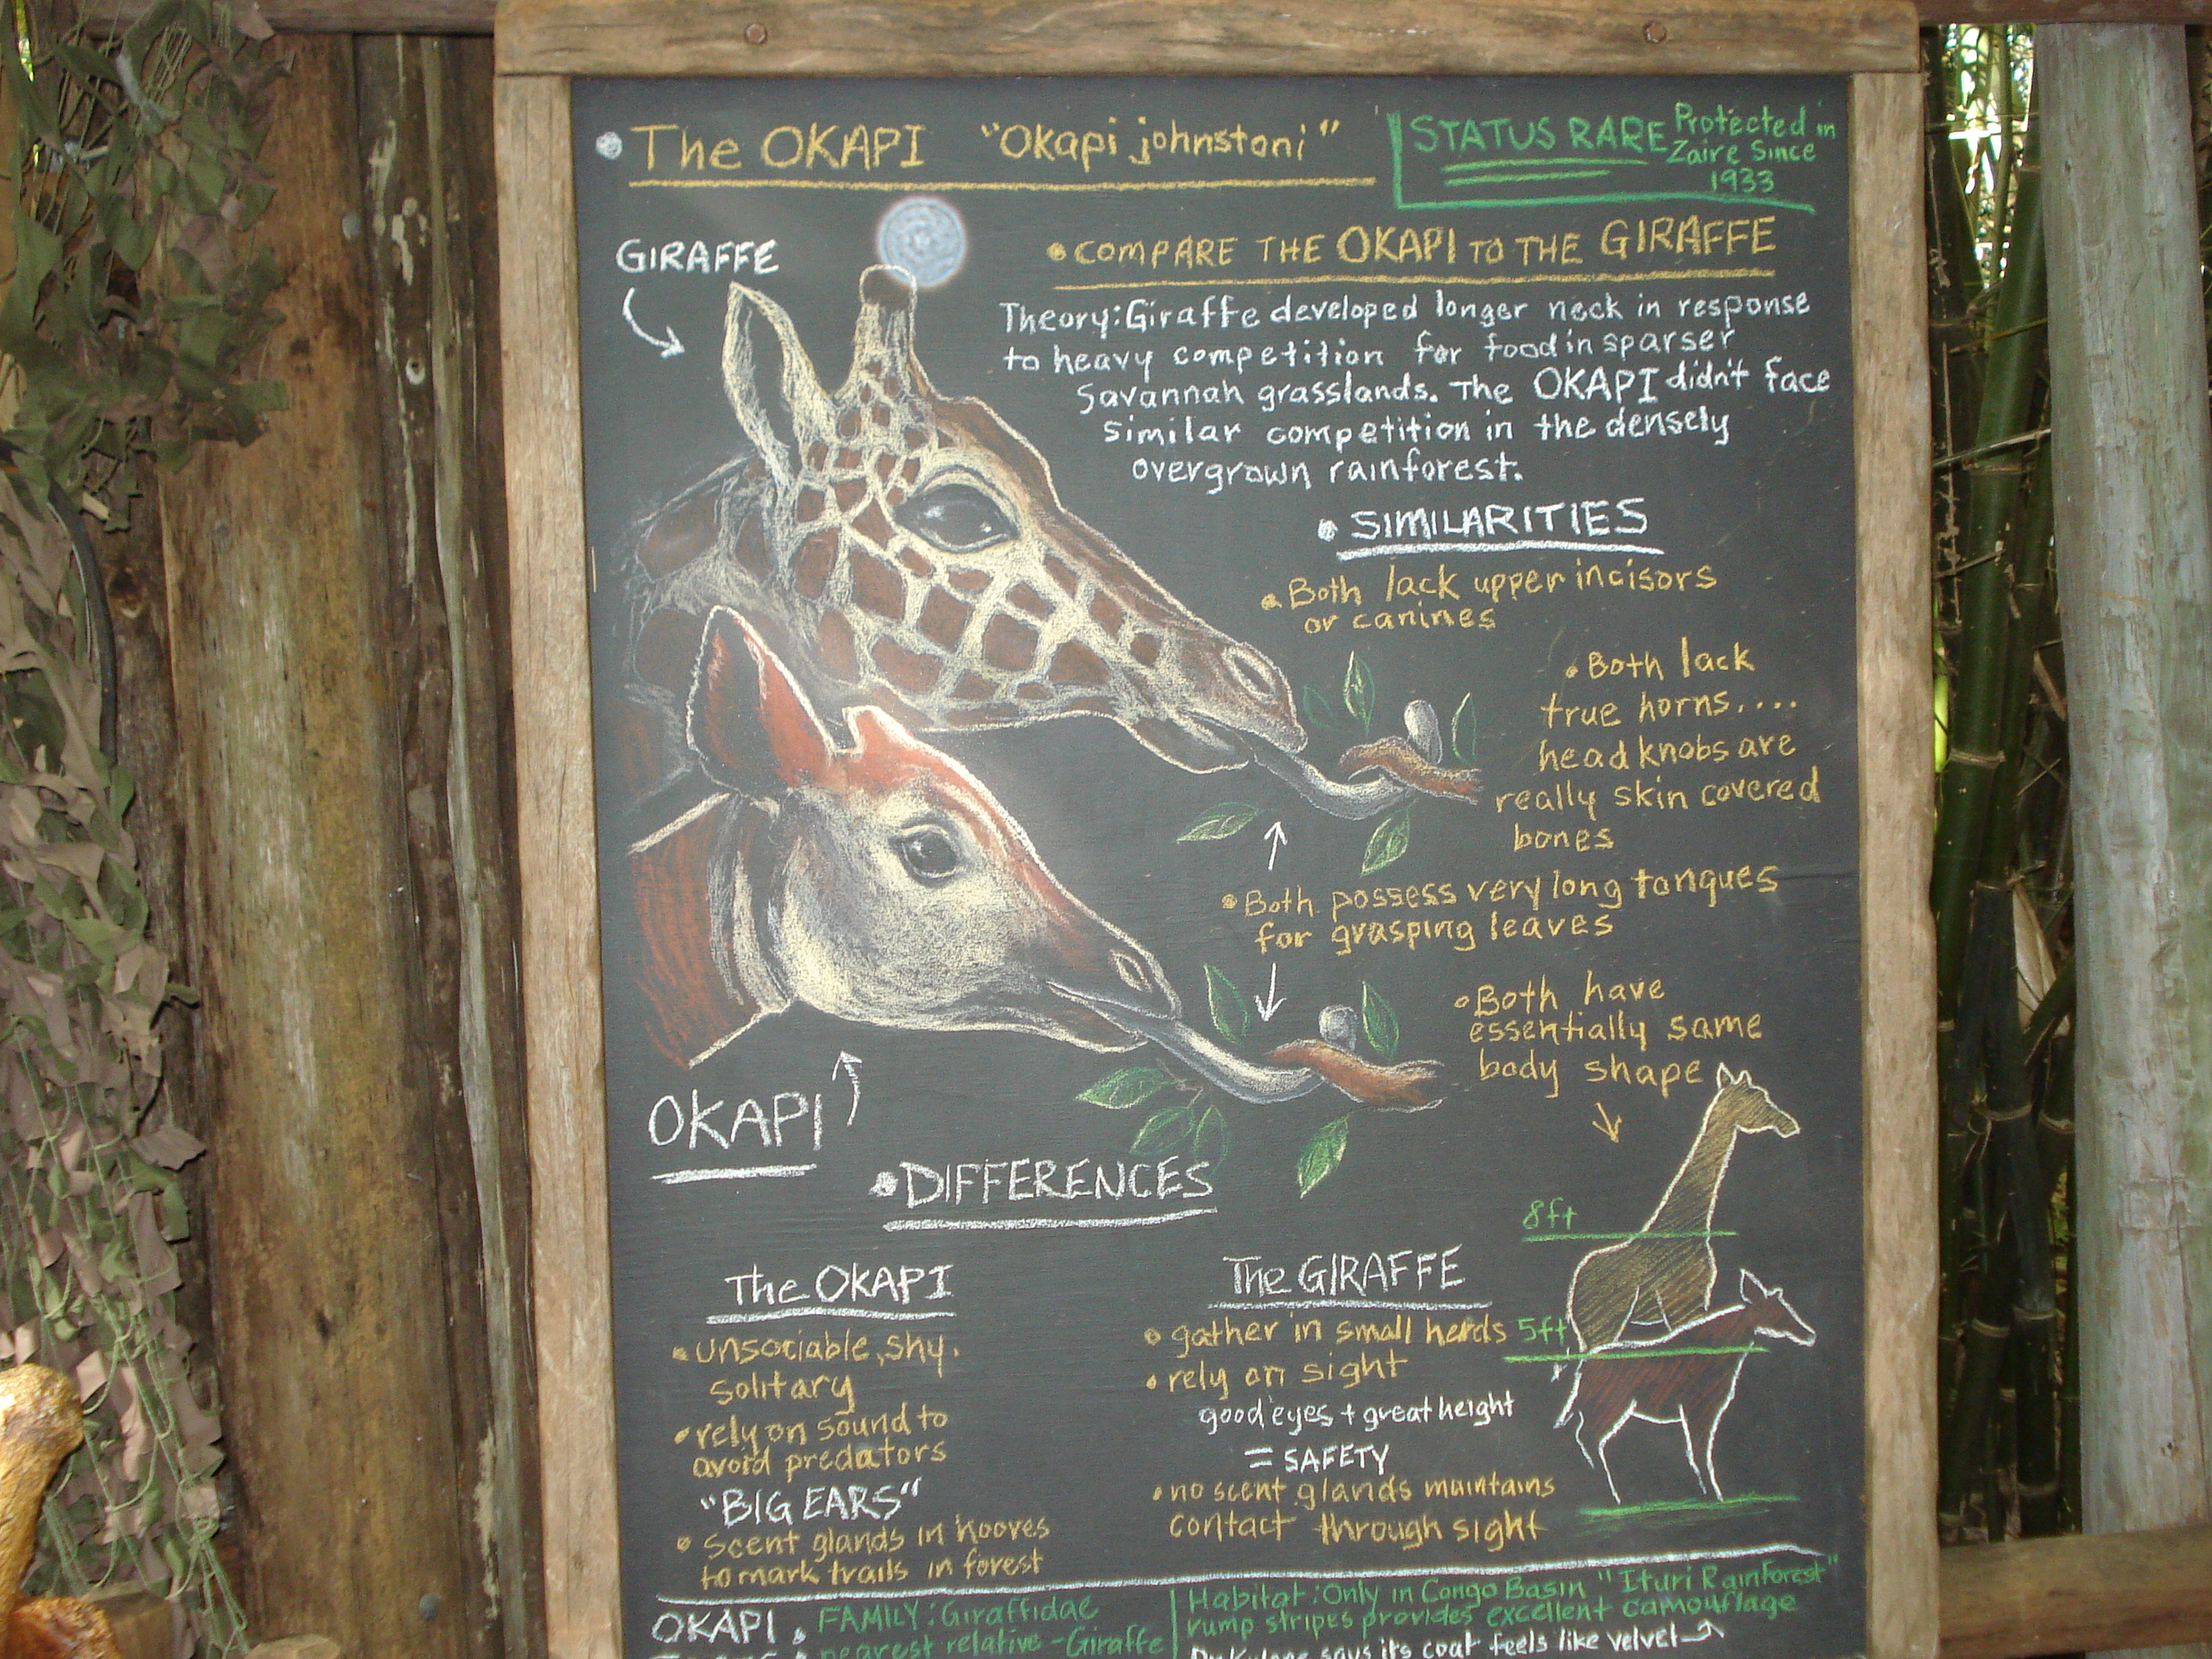 The OKAPI "Okapi johnstoni"
STATUS RARE Protected in
Zaire Since
1933
GIRAFFE
• COMPARE THE OKAPI TO THE GIRAFFE
Theory: Giraffe developed longer neck in response
to heavy competition for food in sparser
Savannah grasslands. The OKAPI didn't face
similar competition in the densely
overgrown rainforest.
• SIMILARITIES
• Both lack upper incisors
or canines
• Both lack
true horns....
head knobs are
really skin covered
bones
• Both possess very long tongues
for grasping leaves
• Both have
essentially same
body shape
OKAPI
• DIFFERENCES
8ft
5ft
The OKAPI
• unsociable, shy.
solitary
• rely on sound to
avoid predators
"BIG EARS"
• Scent glands in hooves
to mark trails in forest
The GIRAFFE
• gather in small herds
• rely on sight
good eyes + great height
= SAFETY
• no scent glands maintains
contact through sight
OKAPI
FAMILY: Giraffidae
nearest relative - Giraffe
Habitat: Only in Congo Basin "Ituri Rainforest"
rump stripes provides excellent camouflage
says its coat feels like velvet